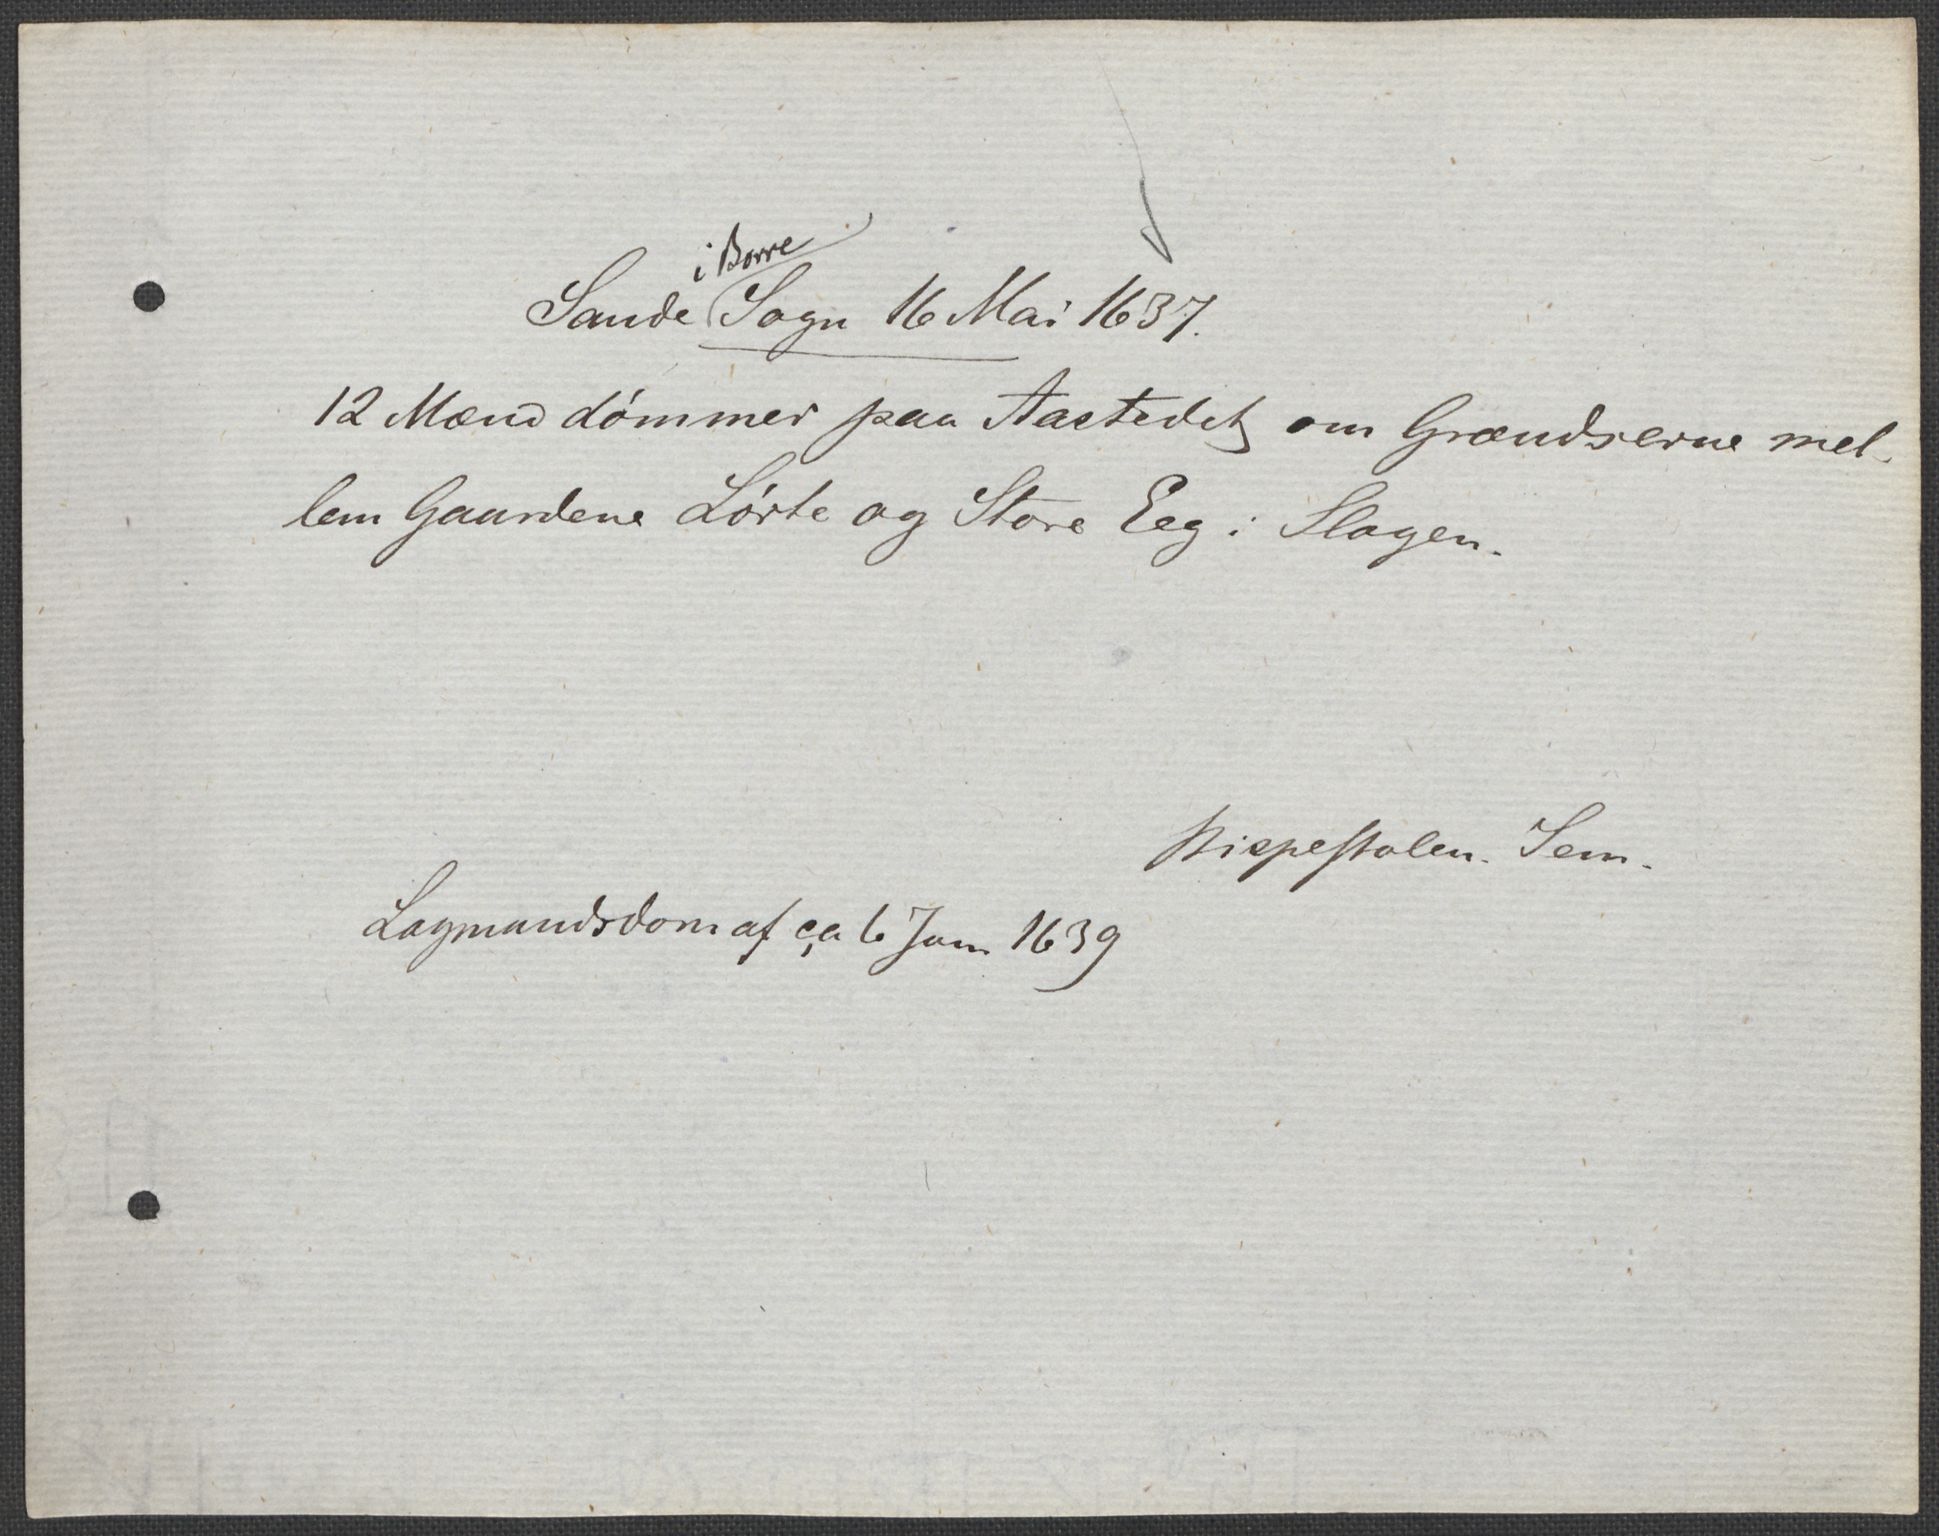 i Borre
Sande (Sogn 16 Mai 1637.
12 Mænd dómmer paa Aastedet om Grændserne mel-
lem Gaardene Lórte og Store Eeg i Slagen.
Bispestolen. Sem.
Lagmandsdom af ca 6 Jan. 1639